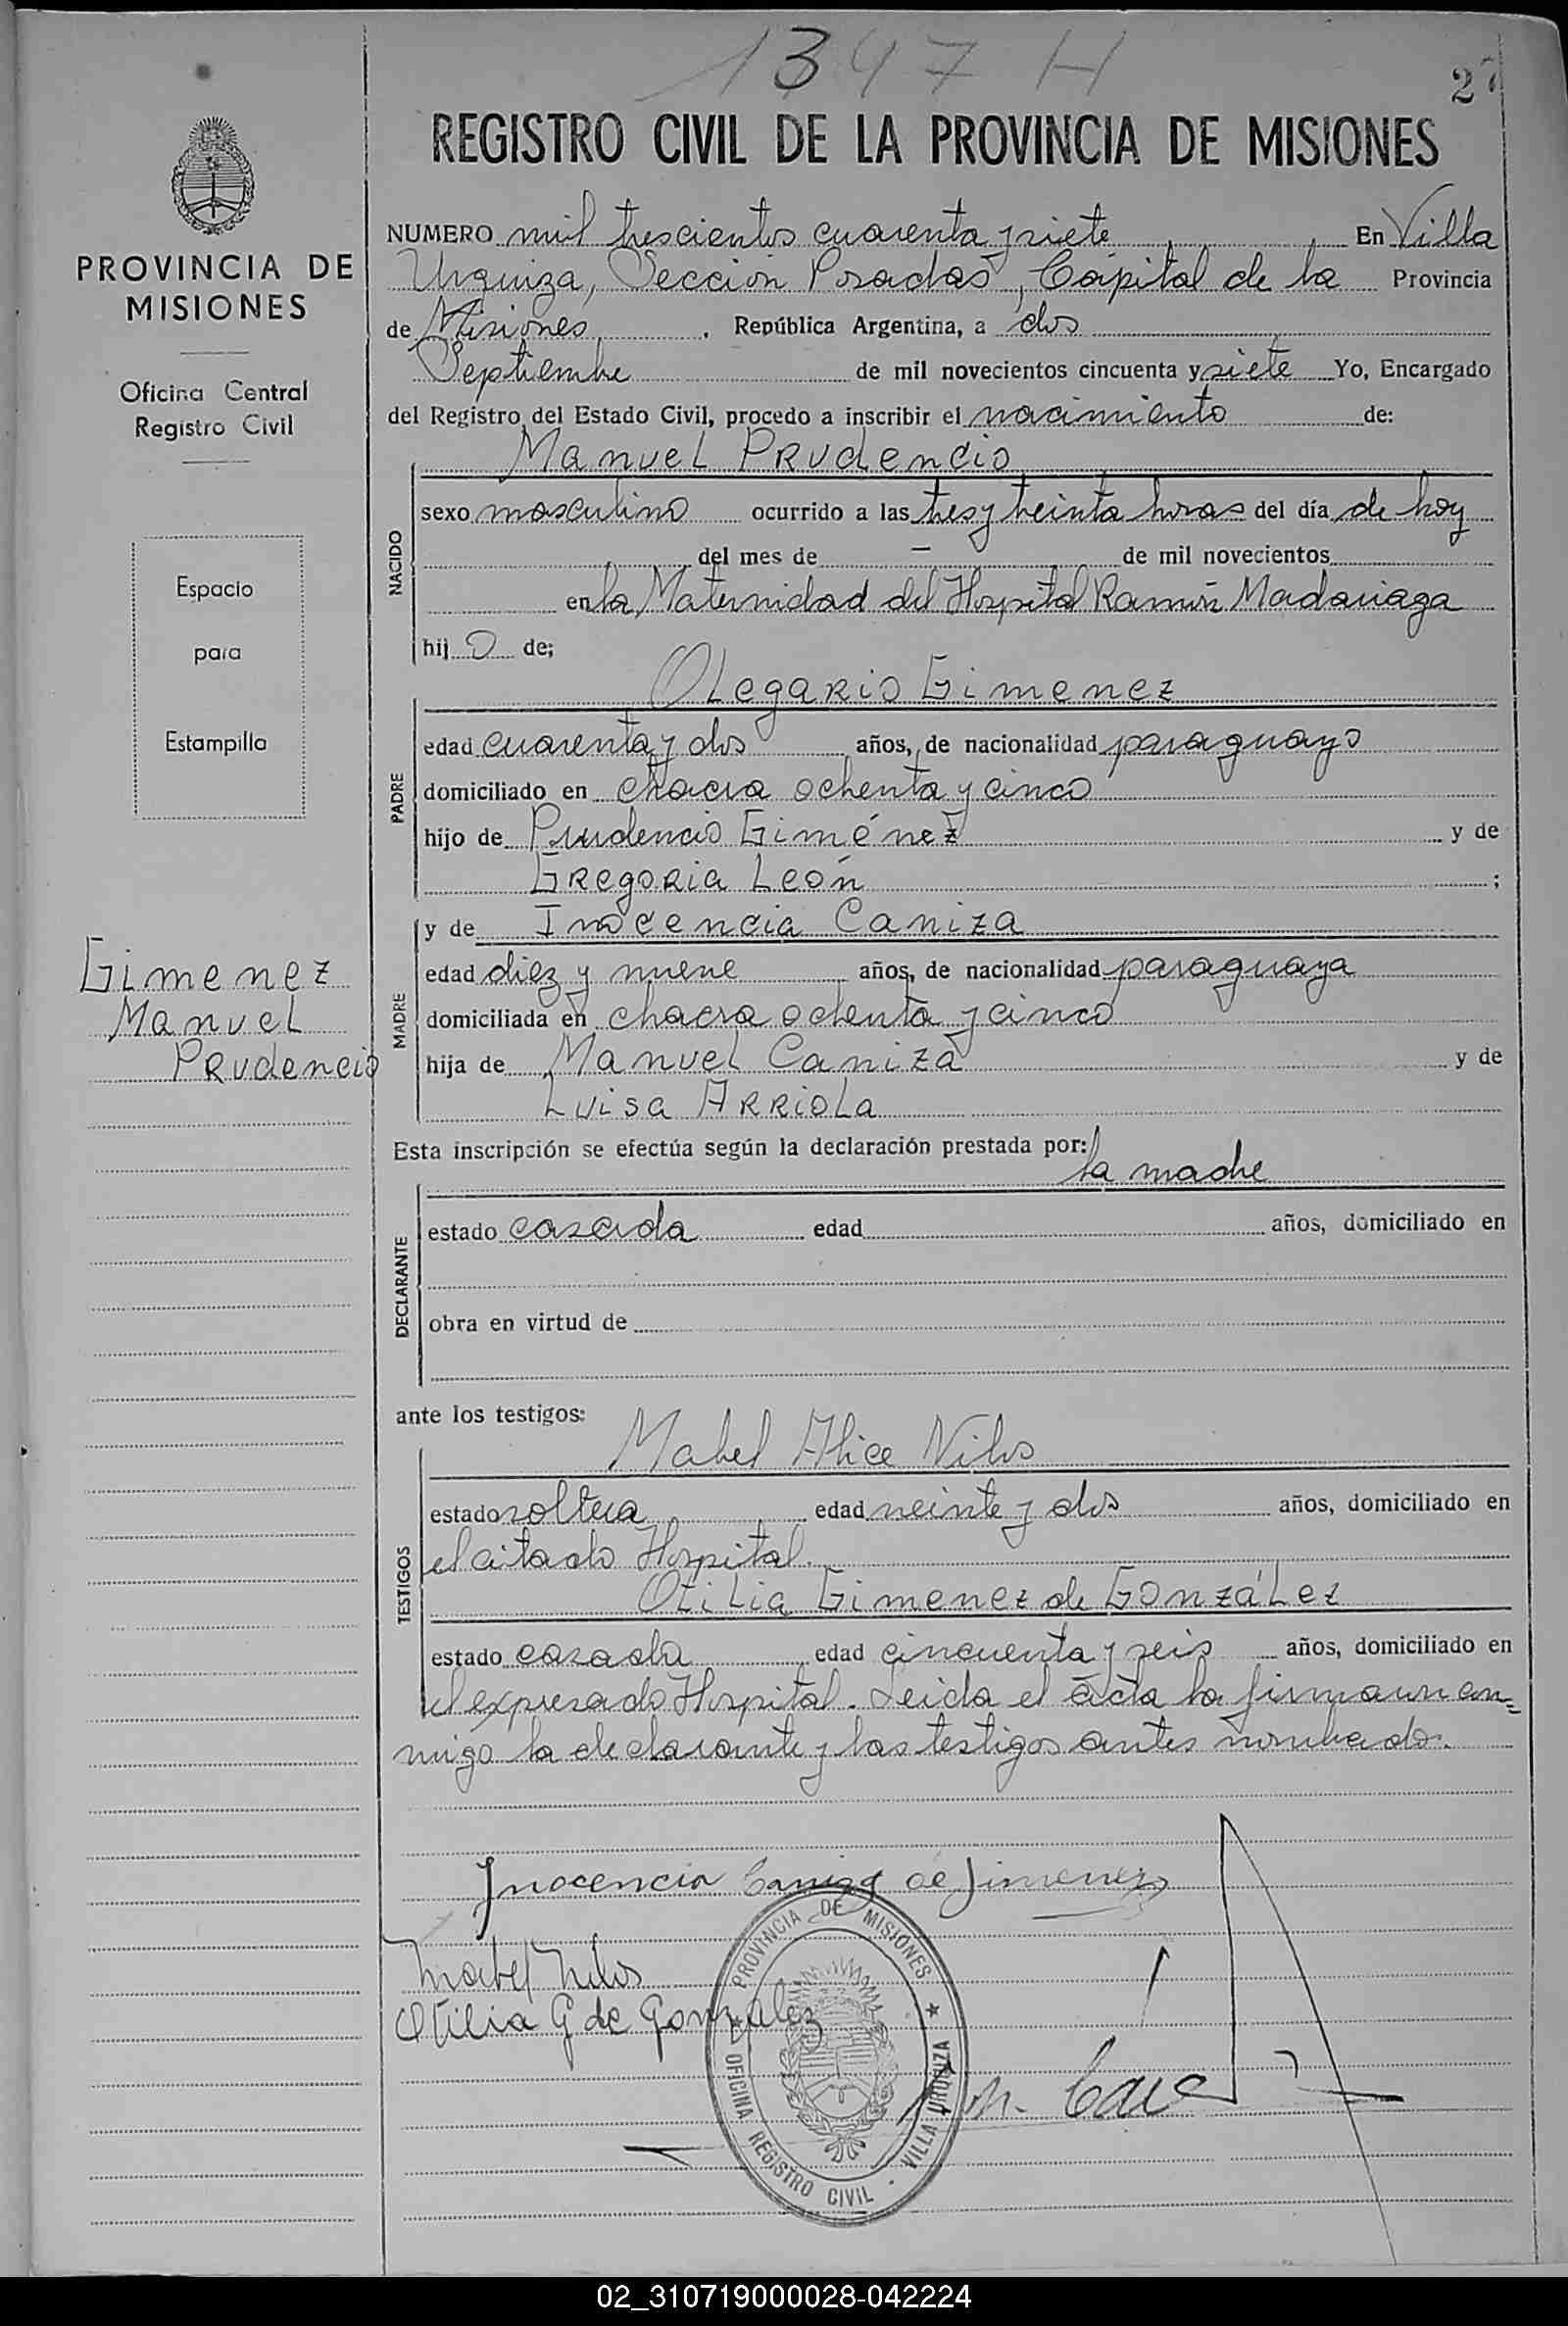 1347 H
27
REGISTRO CIVIL DE LA PROVINCIA DE MISIONES
PROVINCIA DE
MISIONES
Oficina Central
Registro Civil
Espacio
para
Estampilla
Gimenez
Manuel
Prudencio
NUMERO mil trescientos cuarenta y siete En Villa
Urquiza, Sección Posadas, Capital de la Provincia
de Misiones. República Argentina, a dos
Septiembre de mil novecientos cincuenta y siete Yo, Encargado
del Registro del Estado Civil, procedo a inscribir el nacimiento de:
Manuel Prudencio
NACIDO
sexo masculino ocurrido a las tres y treinta horas del día de hoy
del mes de — de mil novecientos
en la Maternidad del Hospital Ramón Madariaga
hijo de;
Olegario Gimenez
PADRE
edad cuarenta y dos años, de nacionalidad paraguayo
domiciliado en chacra ochenta y cinco
hijo de Prudencio Giménez y de
Gregoria León ;
y de Inocencia Caniza
MADRE
edad diez y nueve años, de nacionalidad paraguaya
domiciliada en chacra ochenta y cinco
hija de Manuel Caniza y de
Luisa Arriola
Esta inscripción se efectúa según la declaración prestada por:
la madre
DECLARANTE
estado casada edad años, domiciliado en
obra en virtud de
ante los testigos:
Mabel Alice Nilos
TESTIGOS
estado soltera edad veinte y dos años, domiciliado en
el citado Hospital.
Otilia Gimenez de González
estado casada edad cincuenta y seis años, domiciliado en
el expresado Hospital. Leida el acta la firmaun con=
migo la declarante y las testigos antes nombrado.
Inocencia Caniza de Jimenez
Mabel Nilos
Otilia G de Gonzalez
PROVINCIA DE MISIONES
OFICINA REGISTRO CIVIL - VILLA URQUIZA
02_310719000028-042224